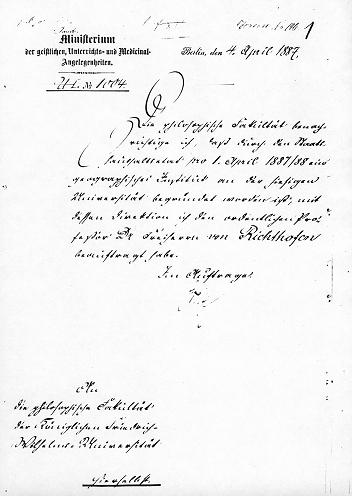 Ministerium
der geistlichen, Unterrichts- und Medicinal-
Angelegenheiten.
Berlin, den 4. April 1887.
1
№ 1004
Die philosophische Fakultät benach-
richtige ich, daß durch den Staats-
haushaltsetat pro 1. April 1887/88 ein
geographisches Institut an der hiesigen
Universität begründet worden ist, mit
dessen Direktion ich den ordentlichen Pro-
fessor Dr. Freiherrn von Richthofen
beauftragt habe.
Im Auftrage
An
die philosophische Fakultät
der Königlichen Friedrich-
Wilhelms-Universität
hierselbst.